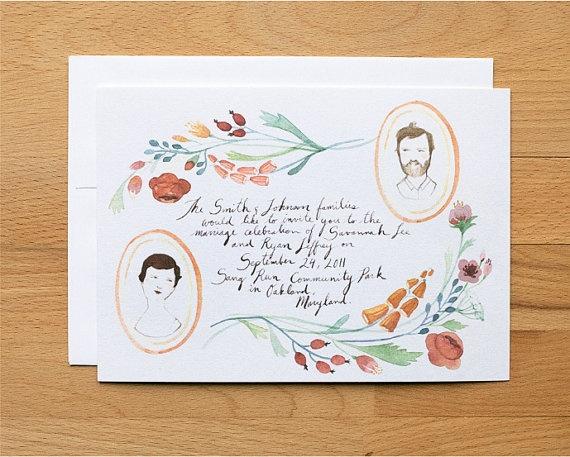 The Smith & Johnson families
would like to invite you to the
marriage celebration of Savannah Lee
and Ryan Jeffrey on
September 24, 2011
Sang Run Community Park
in Oakland,
Maryland.